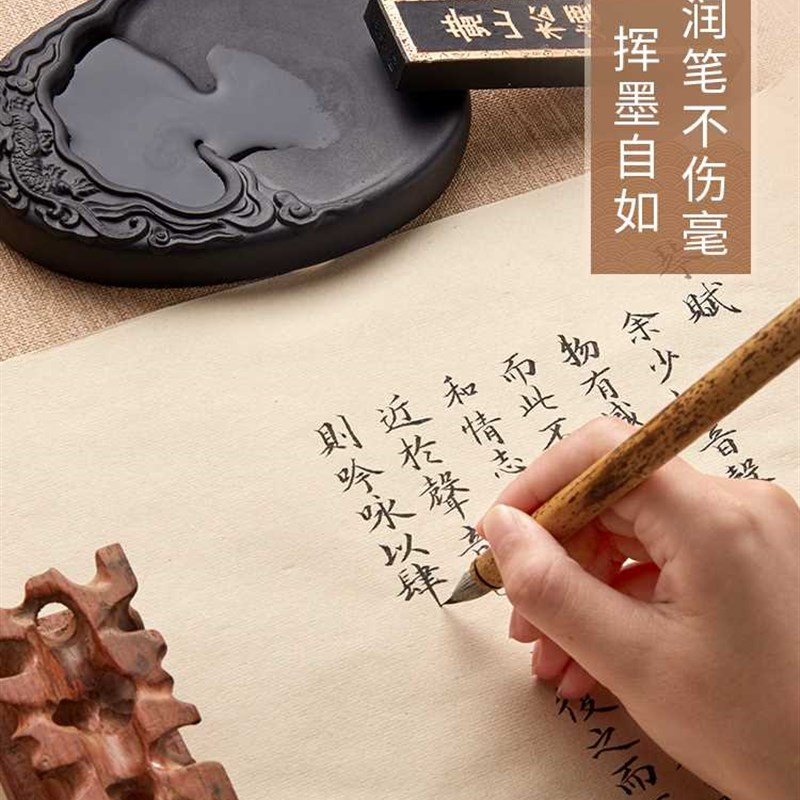 润笔不伤毫
挥墨自如
黄山松
賦
余少
音聲
物有
而此不
和情志
近於聲音
則吟咏以肆
後之而